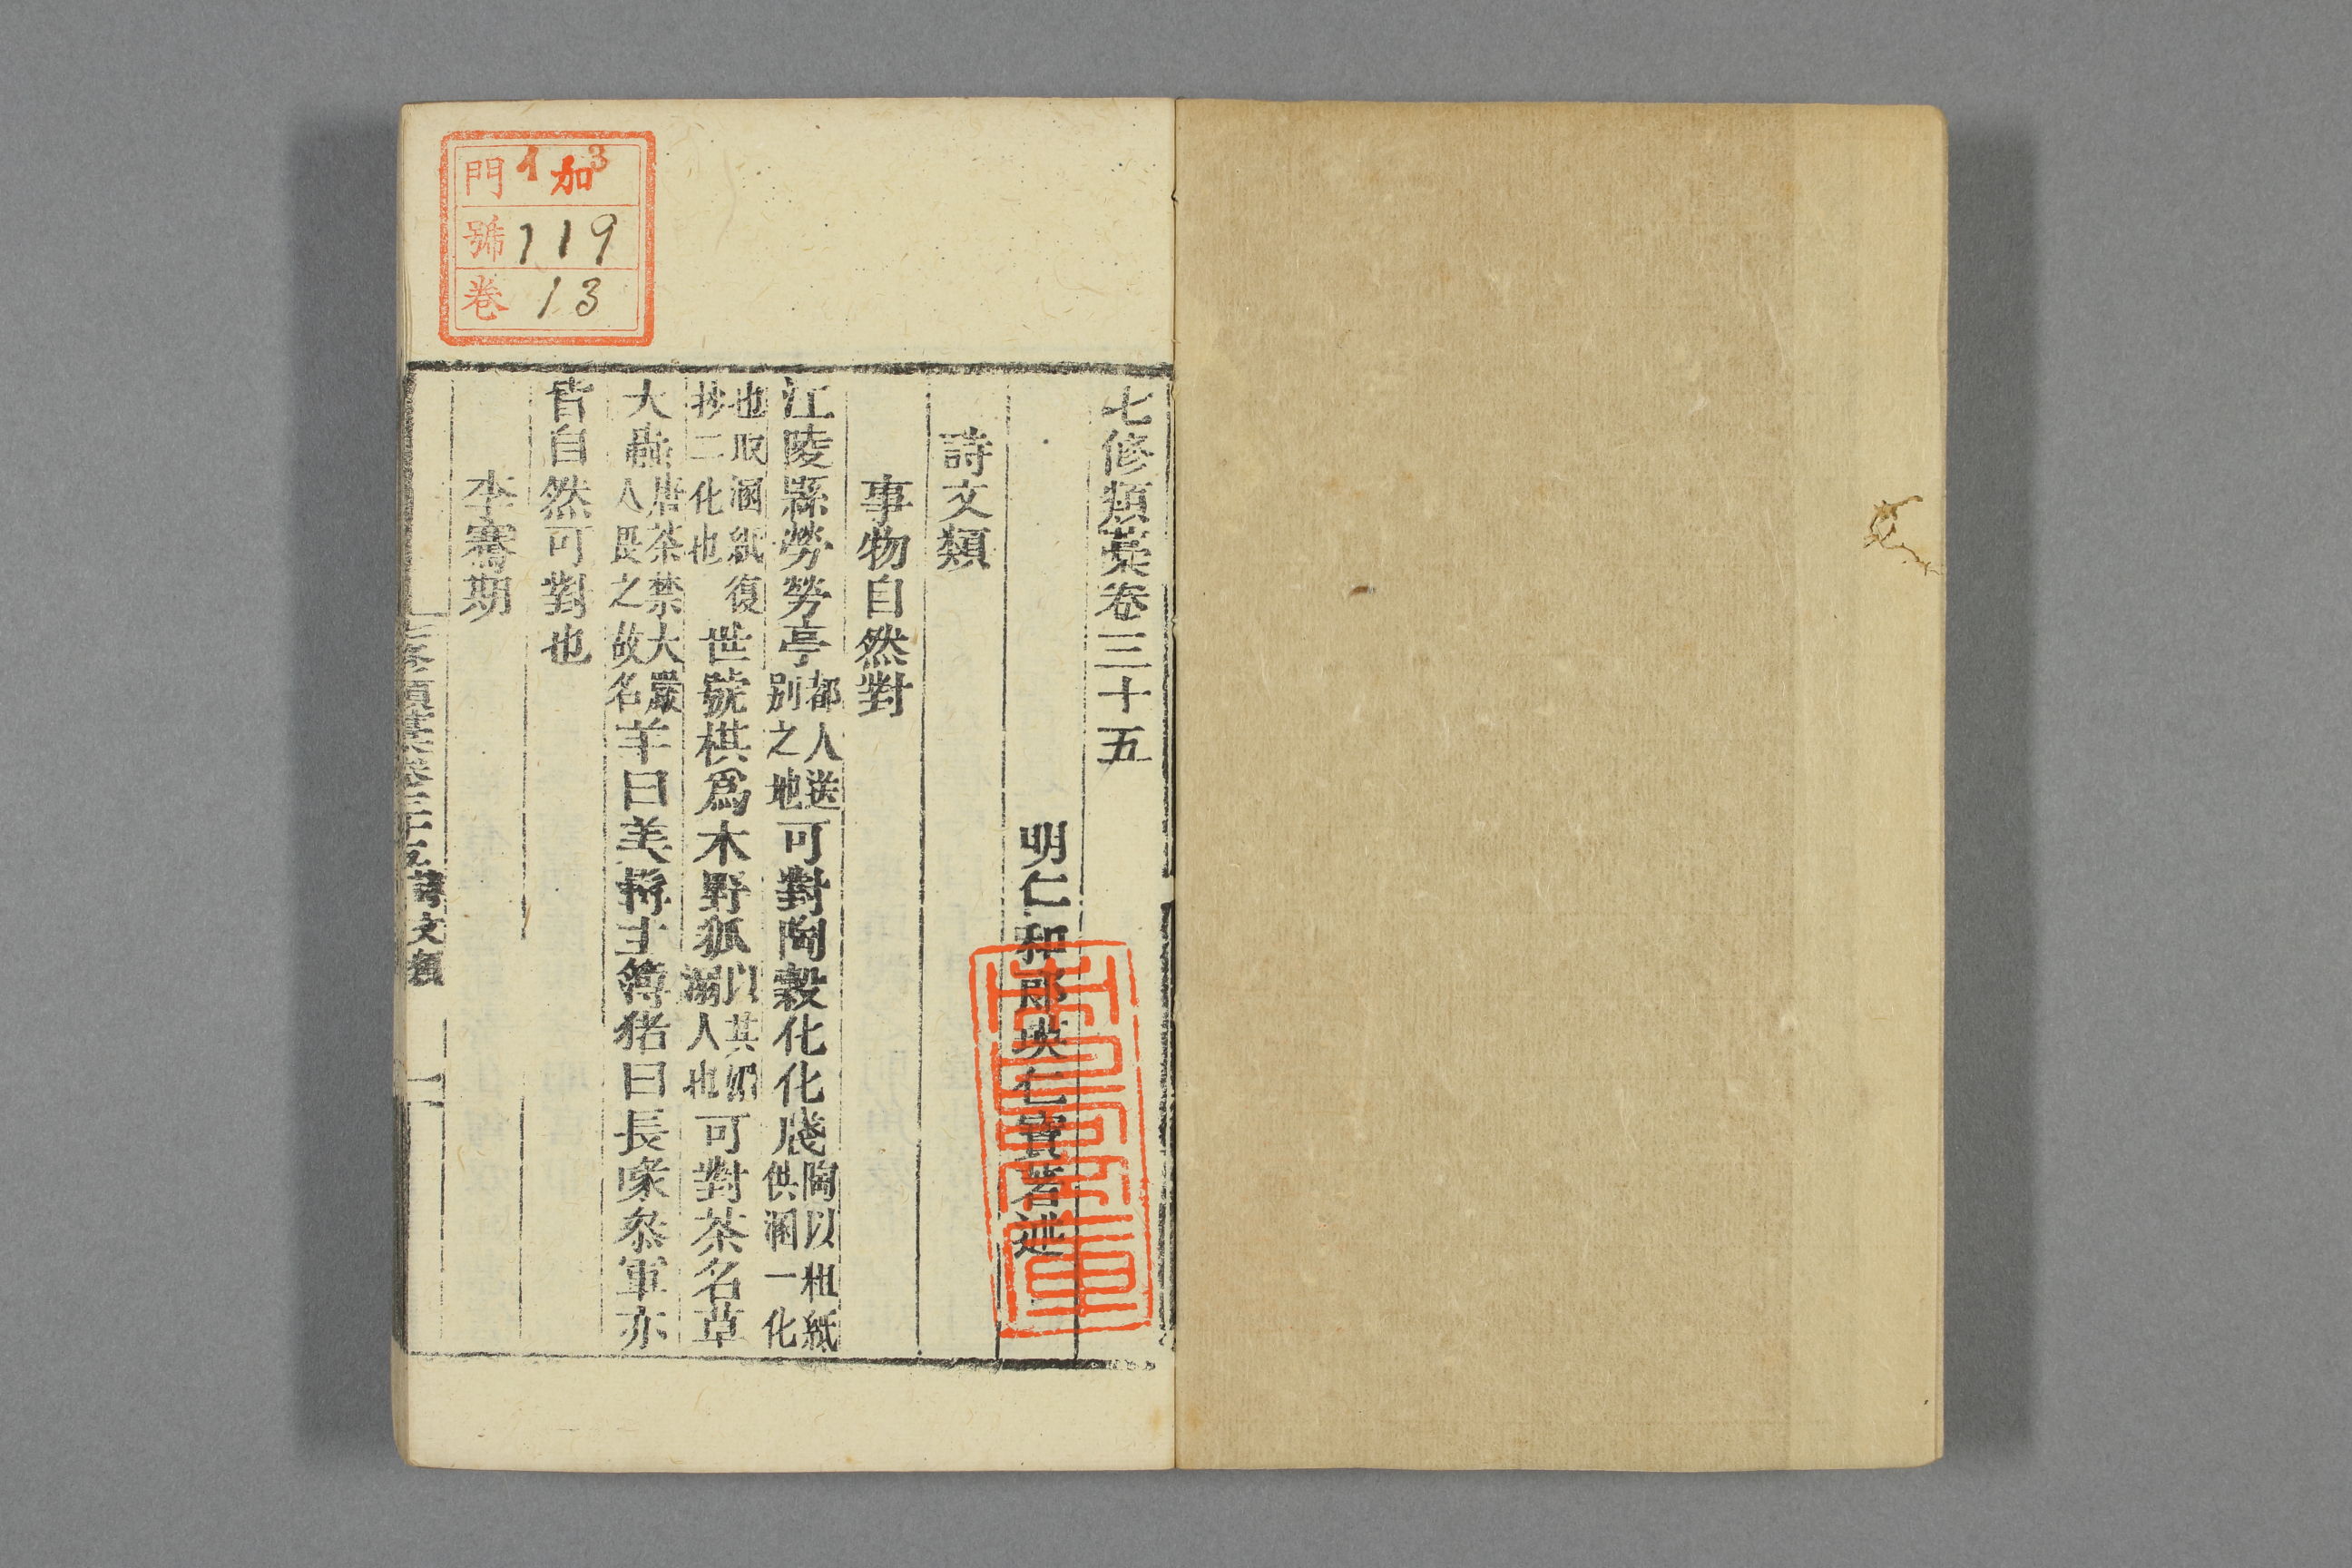 七修類藁卷三十五
明仁和郎瑛仁寶著述
詩文類
事物自然對
江陵縣勞勞亭都人送別之地可對陶穀化化牋陶以粗紙供溷一化
也取溷紙復抄二化也世號棋爲木野狐以其媚溺人也可對茶名草
大蟲唐茶禁大嚴人畏之故名羊曰美髯主簿猪曰長喙叅軍亦
皆自然可對也
李騫期
七修類藁卷三十五 詩文類 一
門 イ 加 3
號 119
卷 13